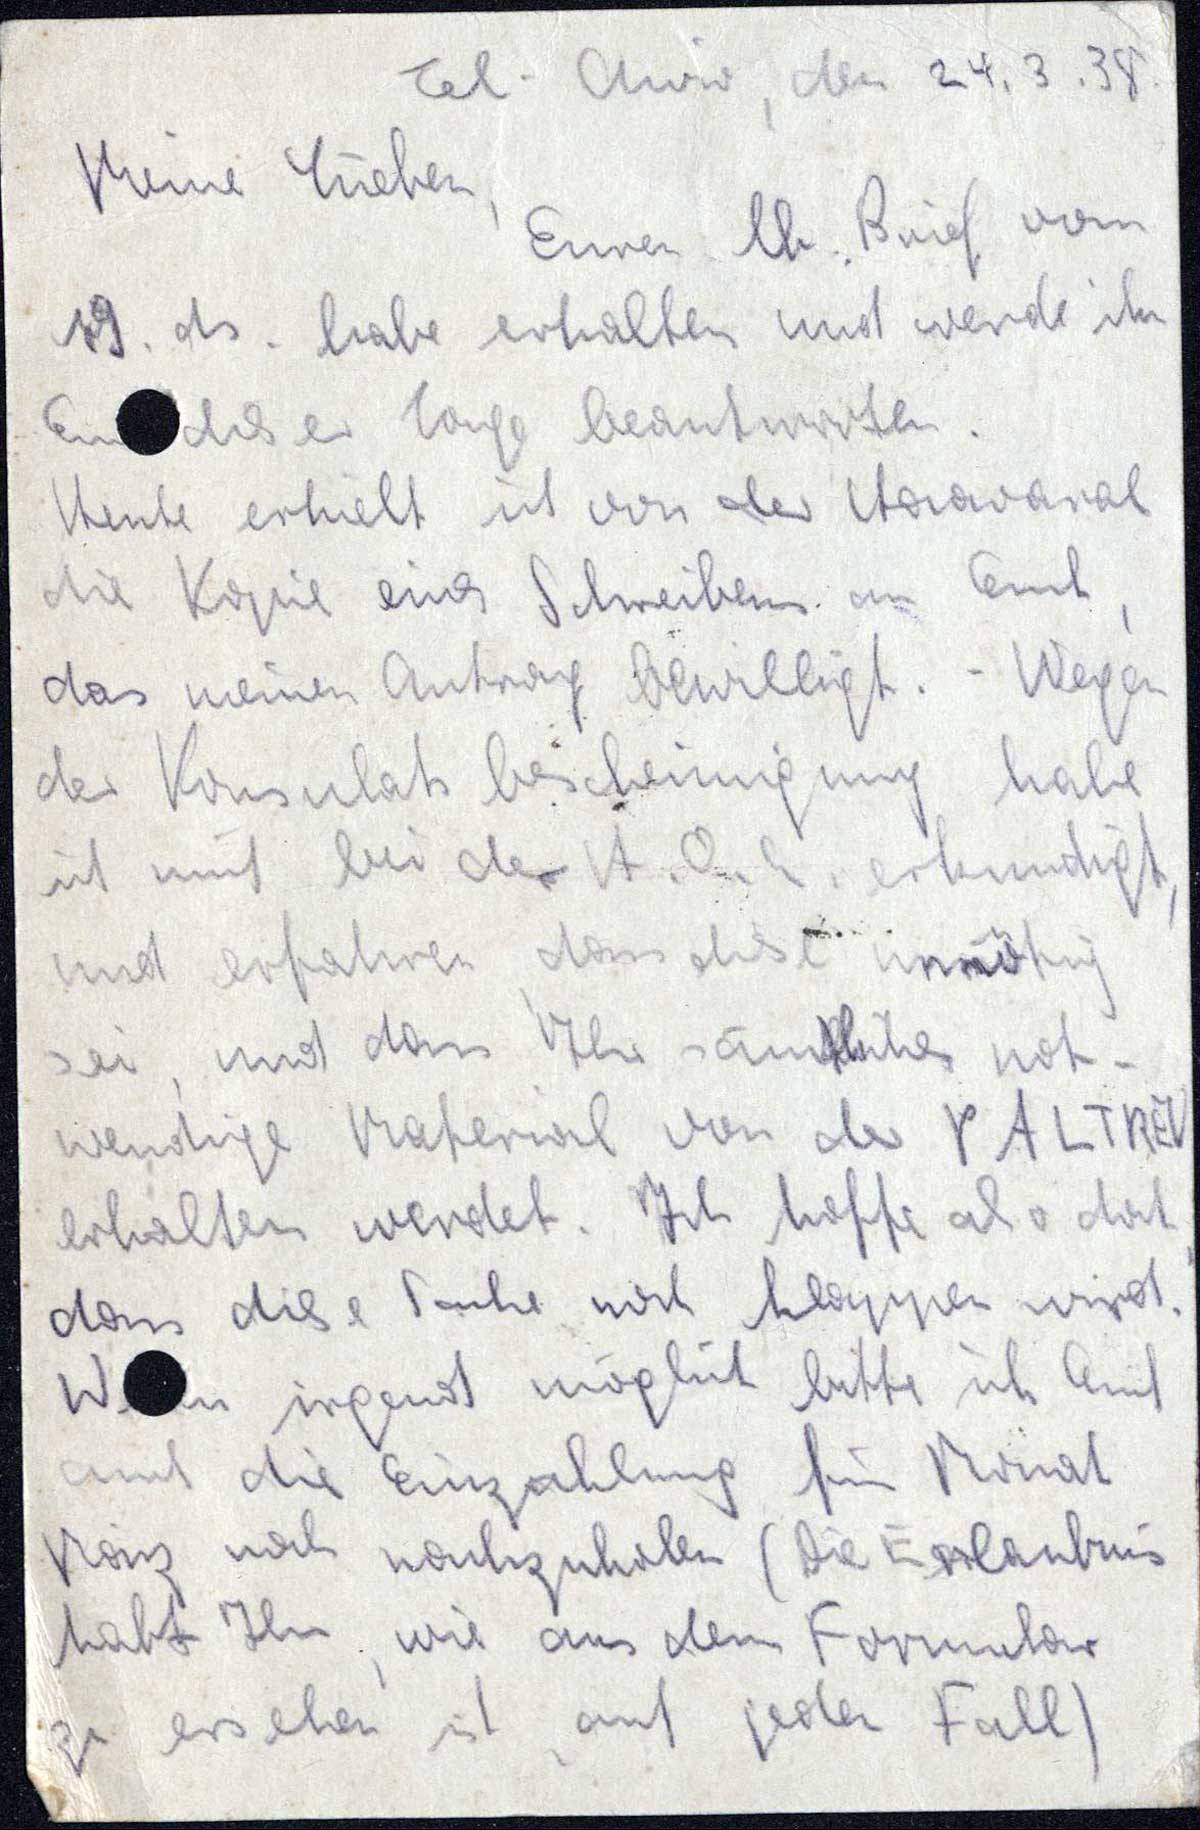 Tel-Aviv, den 24.3.38.
Meine Lieben,
Euren lb. Brief vom
19. ds. habe erhalten und werde ihn
dieser Tage beantworten.
Heute erhielt ich von der Haavarah
die Kopie eines Schreibens an Euch,
das meinen Antrag bewilligt. - Wegen
der Konsulatsbescheinigung habe
ich mich bei der H.O.G. erkundigt,
und erfahren, dass diese unnötig
sei, und dass Ihr sämtliches not-
wendige Material von der PALTREU
erhalten werdet. Ich hoffe also doch,
dass diese Sache noch klappen wird.
irgend möglich bitte ich Euch
auch die Einzahlung für Monat
März noch nachzuholen (Die Erlaubnis
habt Ihr, wie aus dem Formular
zu ersehen ist, auf jeden Fall)